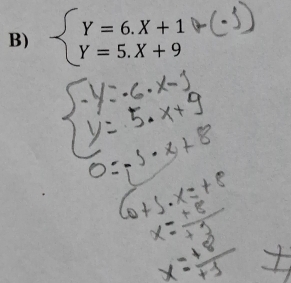 Y = 6.X + 1 (.1)
B)
Y = 5.X + 9
-Y = -6.X-1
Y = 5.X+9
0 = -1.X+8
0+1.X=+8
X = +8/+1
X = +8/+1